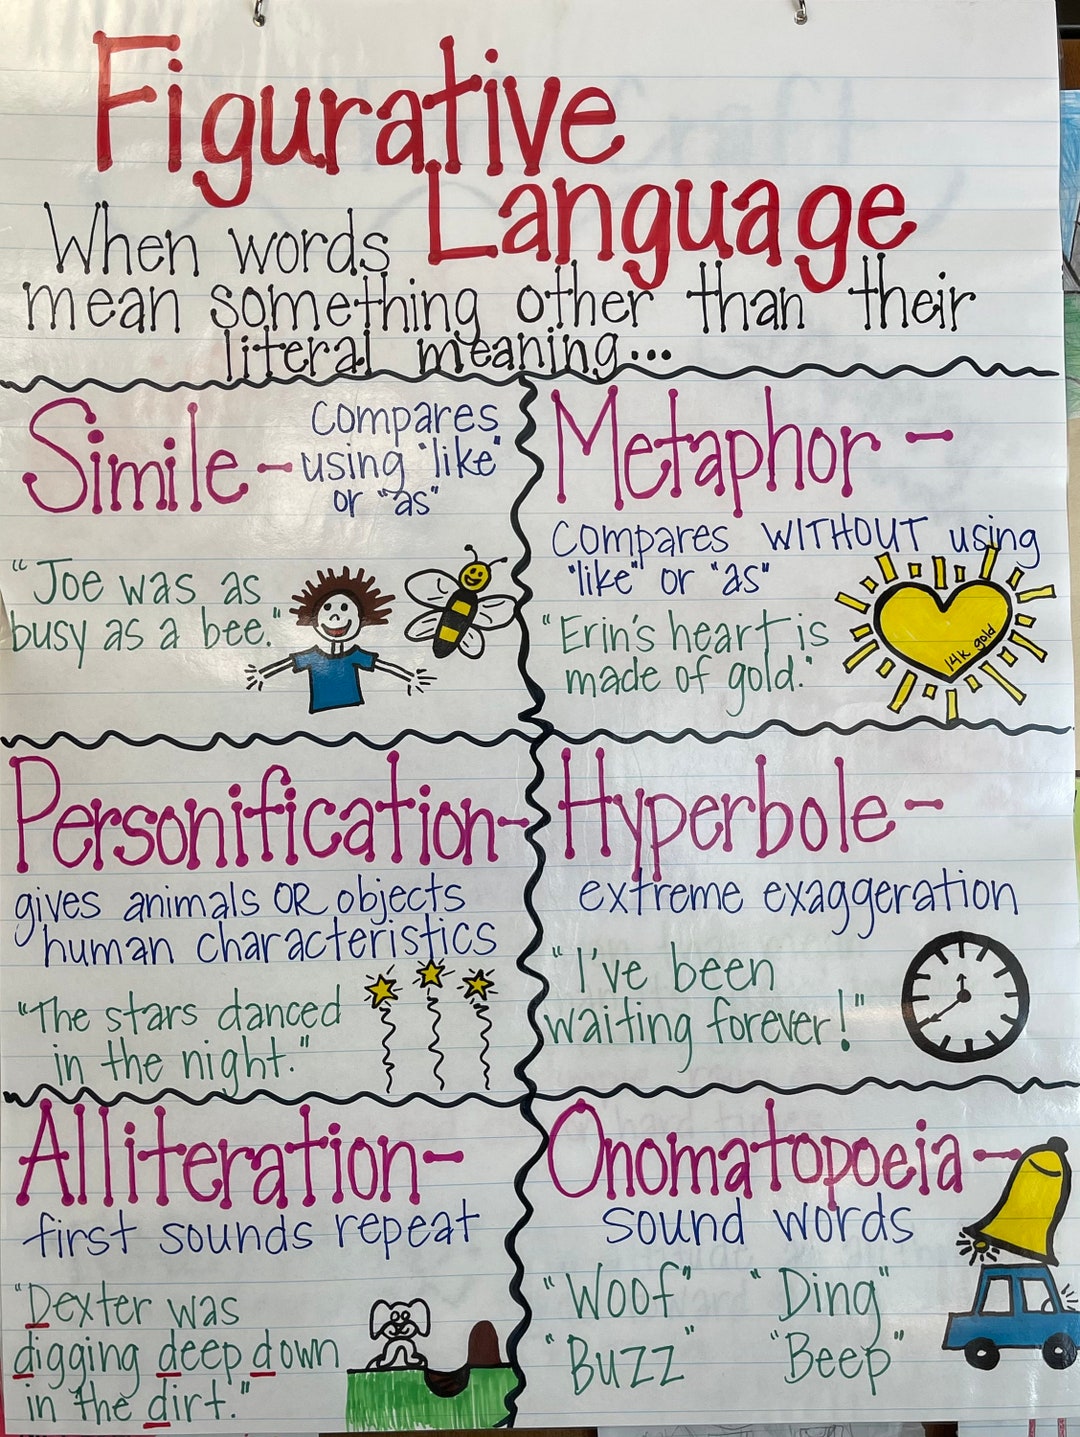 Figurative
Language
When words
mean something other than their
literal meaning...
Simile -
compares
using "like"
or "as"
"Joe was as
busy as a bee."
Metaphor -
compares WITHOUT using
"like" or "as"
"Erin's heart is
made of gold."
14k gold
Personification -
gives animals OR objects
human characteristics
"The stars danced
in the night."
Hyperbole -
extreme exaggeration
"I've been
waiting forever!"
Alliteration -
first sounds repeat
"Dexter was
digging deep down
in the dirt."
Onomatopoeia -
sound words
"Woof" "Ding"
"Buzz" "Beep"